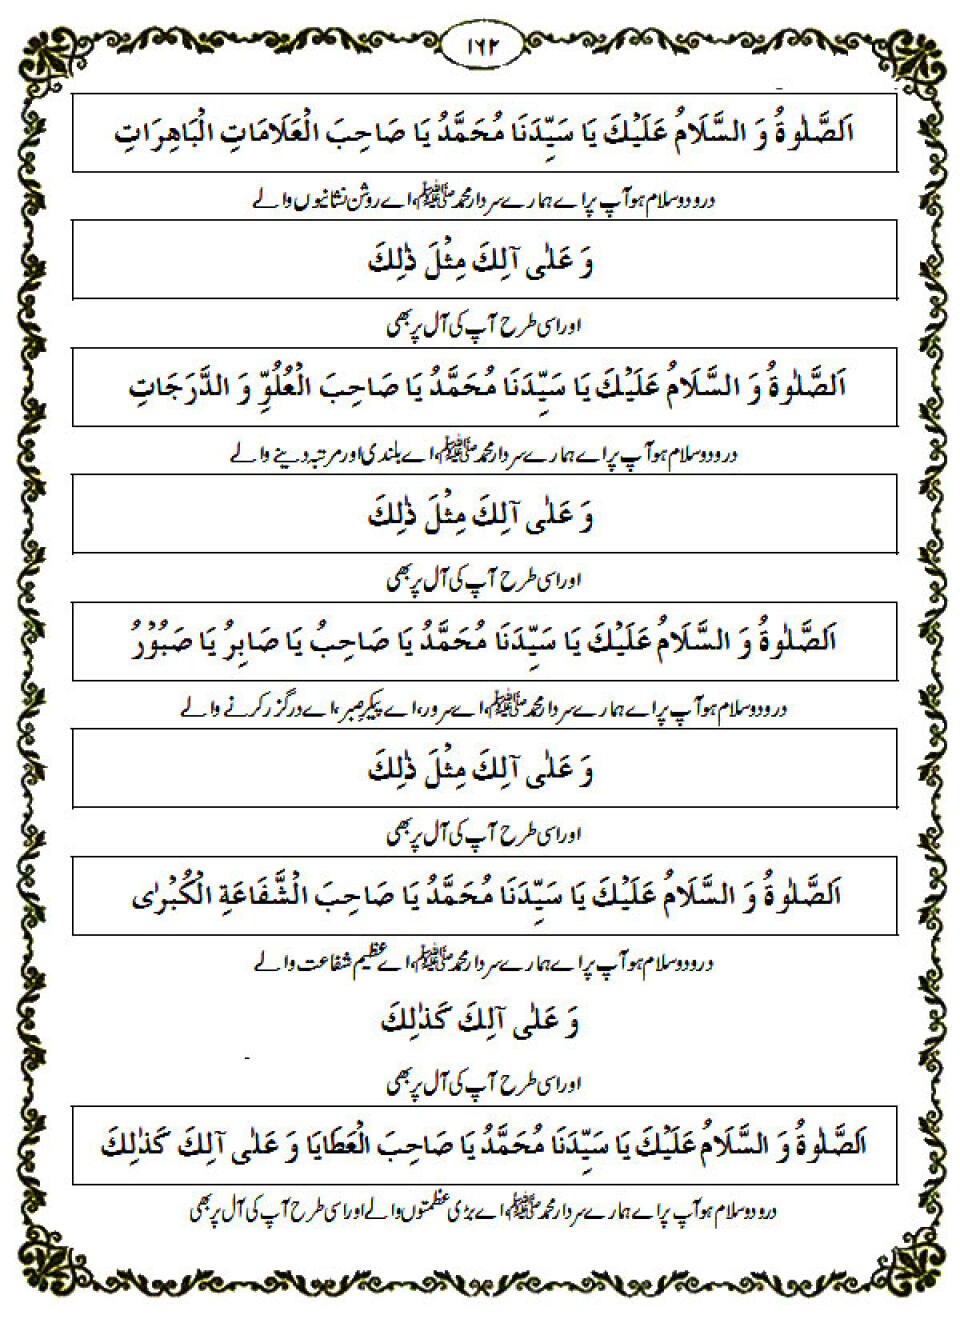 ١٦٢
اَلصَّلٰوةُ وَ السَّلَامُ عَلَيْكَ يَا سَيِّدَنَا مُحَمَّدُ يَا صَاحِبَ الْعَلَامَاتِ الْبَاهِرَاتِ
درود و سلام ہو آپ پر اے ہمارے سردار محمد ﷺ، اے روشن نشانیوں والے
وَ عَلٰى آلِكَ مِثْلَ ذٰلِكَ
اور اسی طرح آپ کی آل پر بھی
اَلصَّلٰوةُ وَ السَّلَامُ عَلَيْكَ يَا سَيِّدَنَا مُحَمَّدُ يَا صَاحِبَ الْعُلُوِّ وَ الدَّرَجَاتِ
درود و سلام ہو آپ پر اے ہمارے سردار محمد ﷺ، اے بلندی اور مرتبہ دینے والے
وَ عَلٰى آلِكَ مِثْلَ ذٰلِكَ
اور اسی طرح آپ کی آل پر بھی
اَلصَّلٰوةُ وَ السَّلَامُ عَلَيْكَ يَا سَيِّدَنَا مُحَمَّدُ يَا صَاحِبُ يَا صَابِرُ يَا صَبُوْرُ
درود و سلام ہو آپ پر اے ہمارے سردار محمد ﷺ، اے سرور، اے پیکرِ صبر، اے درگزر کرنے والے
وَ عَلٰى آلِكَ مِثْلَ ذٰلِكَ
اور اسی طرح آپ کی آل پر بھی
اَلصَّلٰوةُ وَ السَّلَامُ عَلَيْكَ يَا سَيِّدَنَا مُحَمَّدُ يَا صَاحِبَ الْشَّفَاعَةِ الْكُبْرٰى
درود و سلام ہو آپ پر اے ہمارے سردار محمد ﷺ، اے عظیم شفاعت والے
وَ عَلٰى آلِكَ كَذٰلِكَ
اور اسی طرح آپ کی آل پر بھی
اَلصَّلٰوةُ وَ السَّلَامُ عَلَيْكَ يَا سَيِّدَنَا مُحَمَّدُ يَا صَاحِبَ الْعَطَايَا وَ عَلٰى آلِكَ كَذٰلِكَ
درود و سلام ہو آپ پر اے ہمارے سردار محمد ﷺ، اے بڑی عظمتوں والے اور اسی طرح آپ کی آل پر بھی